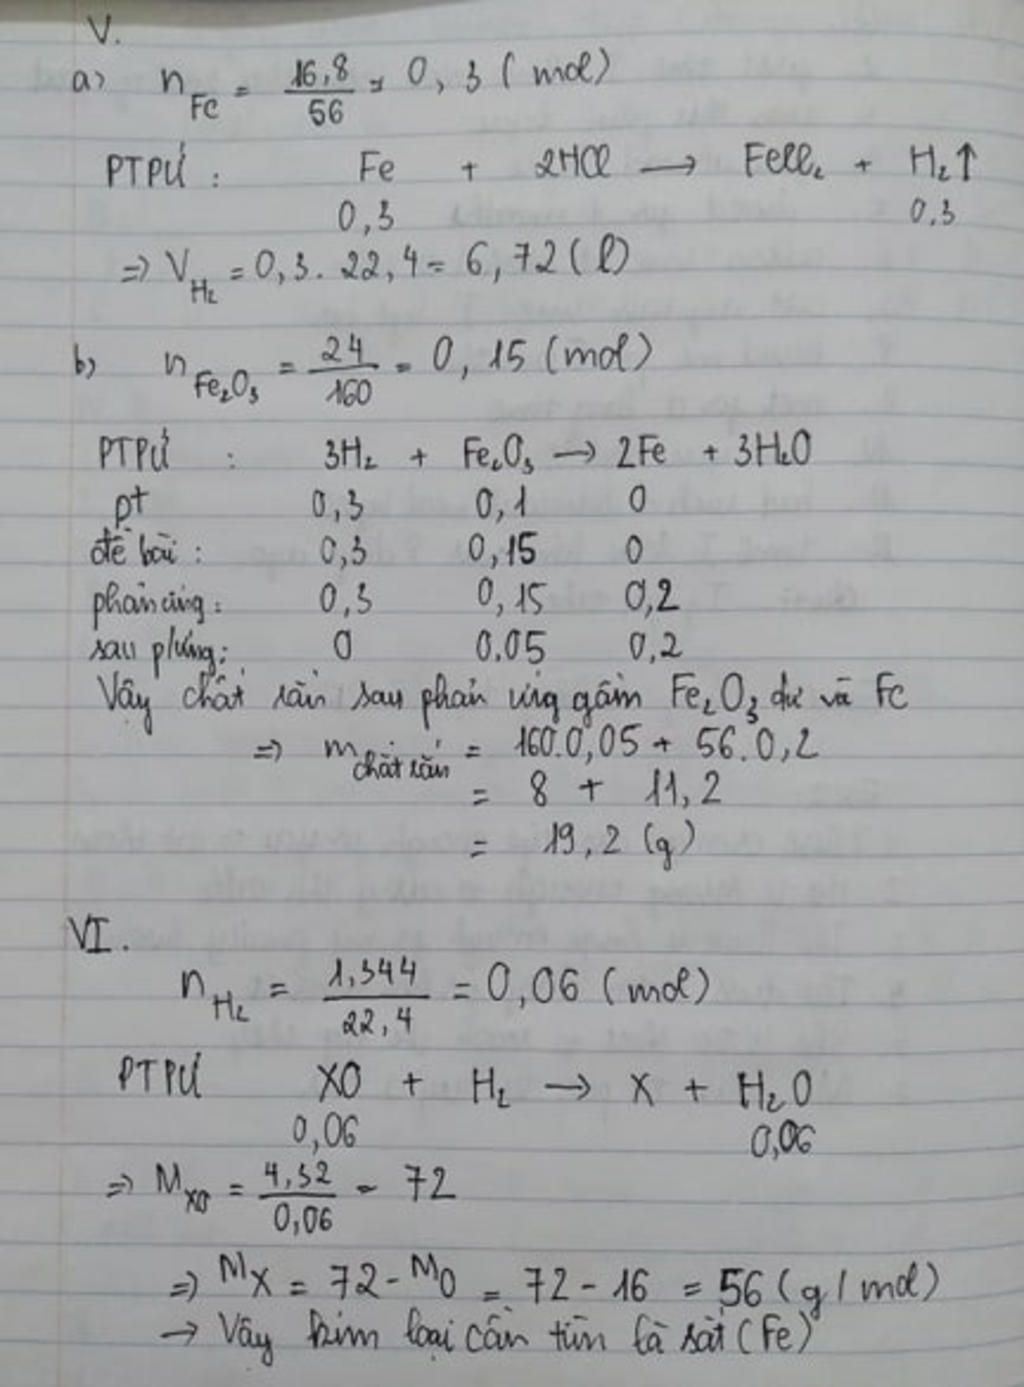 V.
a) n Fe = 16,8/56 = 0,3 (mol)
PTPỨ : Fe + 2HCl → FeCl₂ + H₂↑
0,3 0,3
=> V H₂ = 0,3. 22,4 = 6,72 (l)
b) n Fe₂O₃ = 24/160 = 0,15 (mol)
PTPỨ : 3H₂ + Fe₂O₃ → 2Fe + 3H₂O
pt 0,3 0,1 0
đề bài : 0,3 0,15 0
phản ứng : 0,3 0,15 0,2
sau pứng : 0 0.05 0,2
Vậy chất rắn sau phản ứng gồm Fe₂O₃ dư và Fe
=> m chất rắn = 160.0,05 + 56.0,2
= 8 + 11,2
= 19,2 (g)
VI.
n H₂ = 1,344/22,4 = 0,06 (mol)
PTPỨ XO + H₂ → X + H₂O
0,06 0,06
=> M XO = 4,32/0,06 = 72
=> M X = 72 - M O = 72 - 16 = 56 (g/mol)
→ Vậy kim loại cần tìm là sắt (Fe)